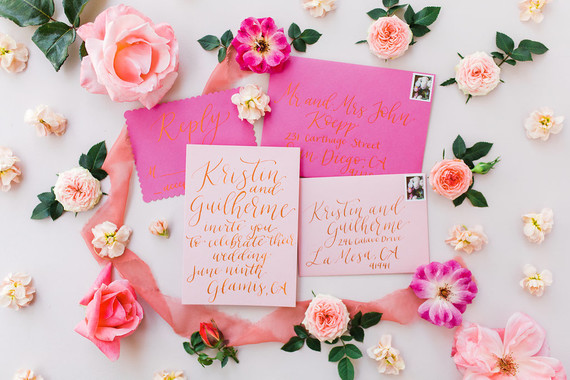 Reply
Mr and Mrs John
Koepp
231 Carthage Street
San Diego, CA
Kristin
and
Guilherme
invite you
to celebrate their
wedding
june ninth
Glamis, CA
Kristin and
Guilherme
Drive
La Mesa, CA
91941